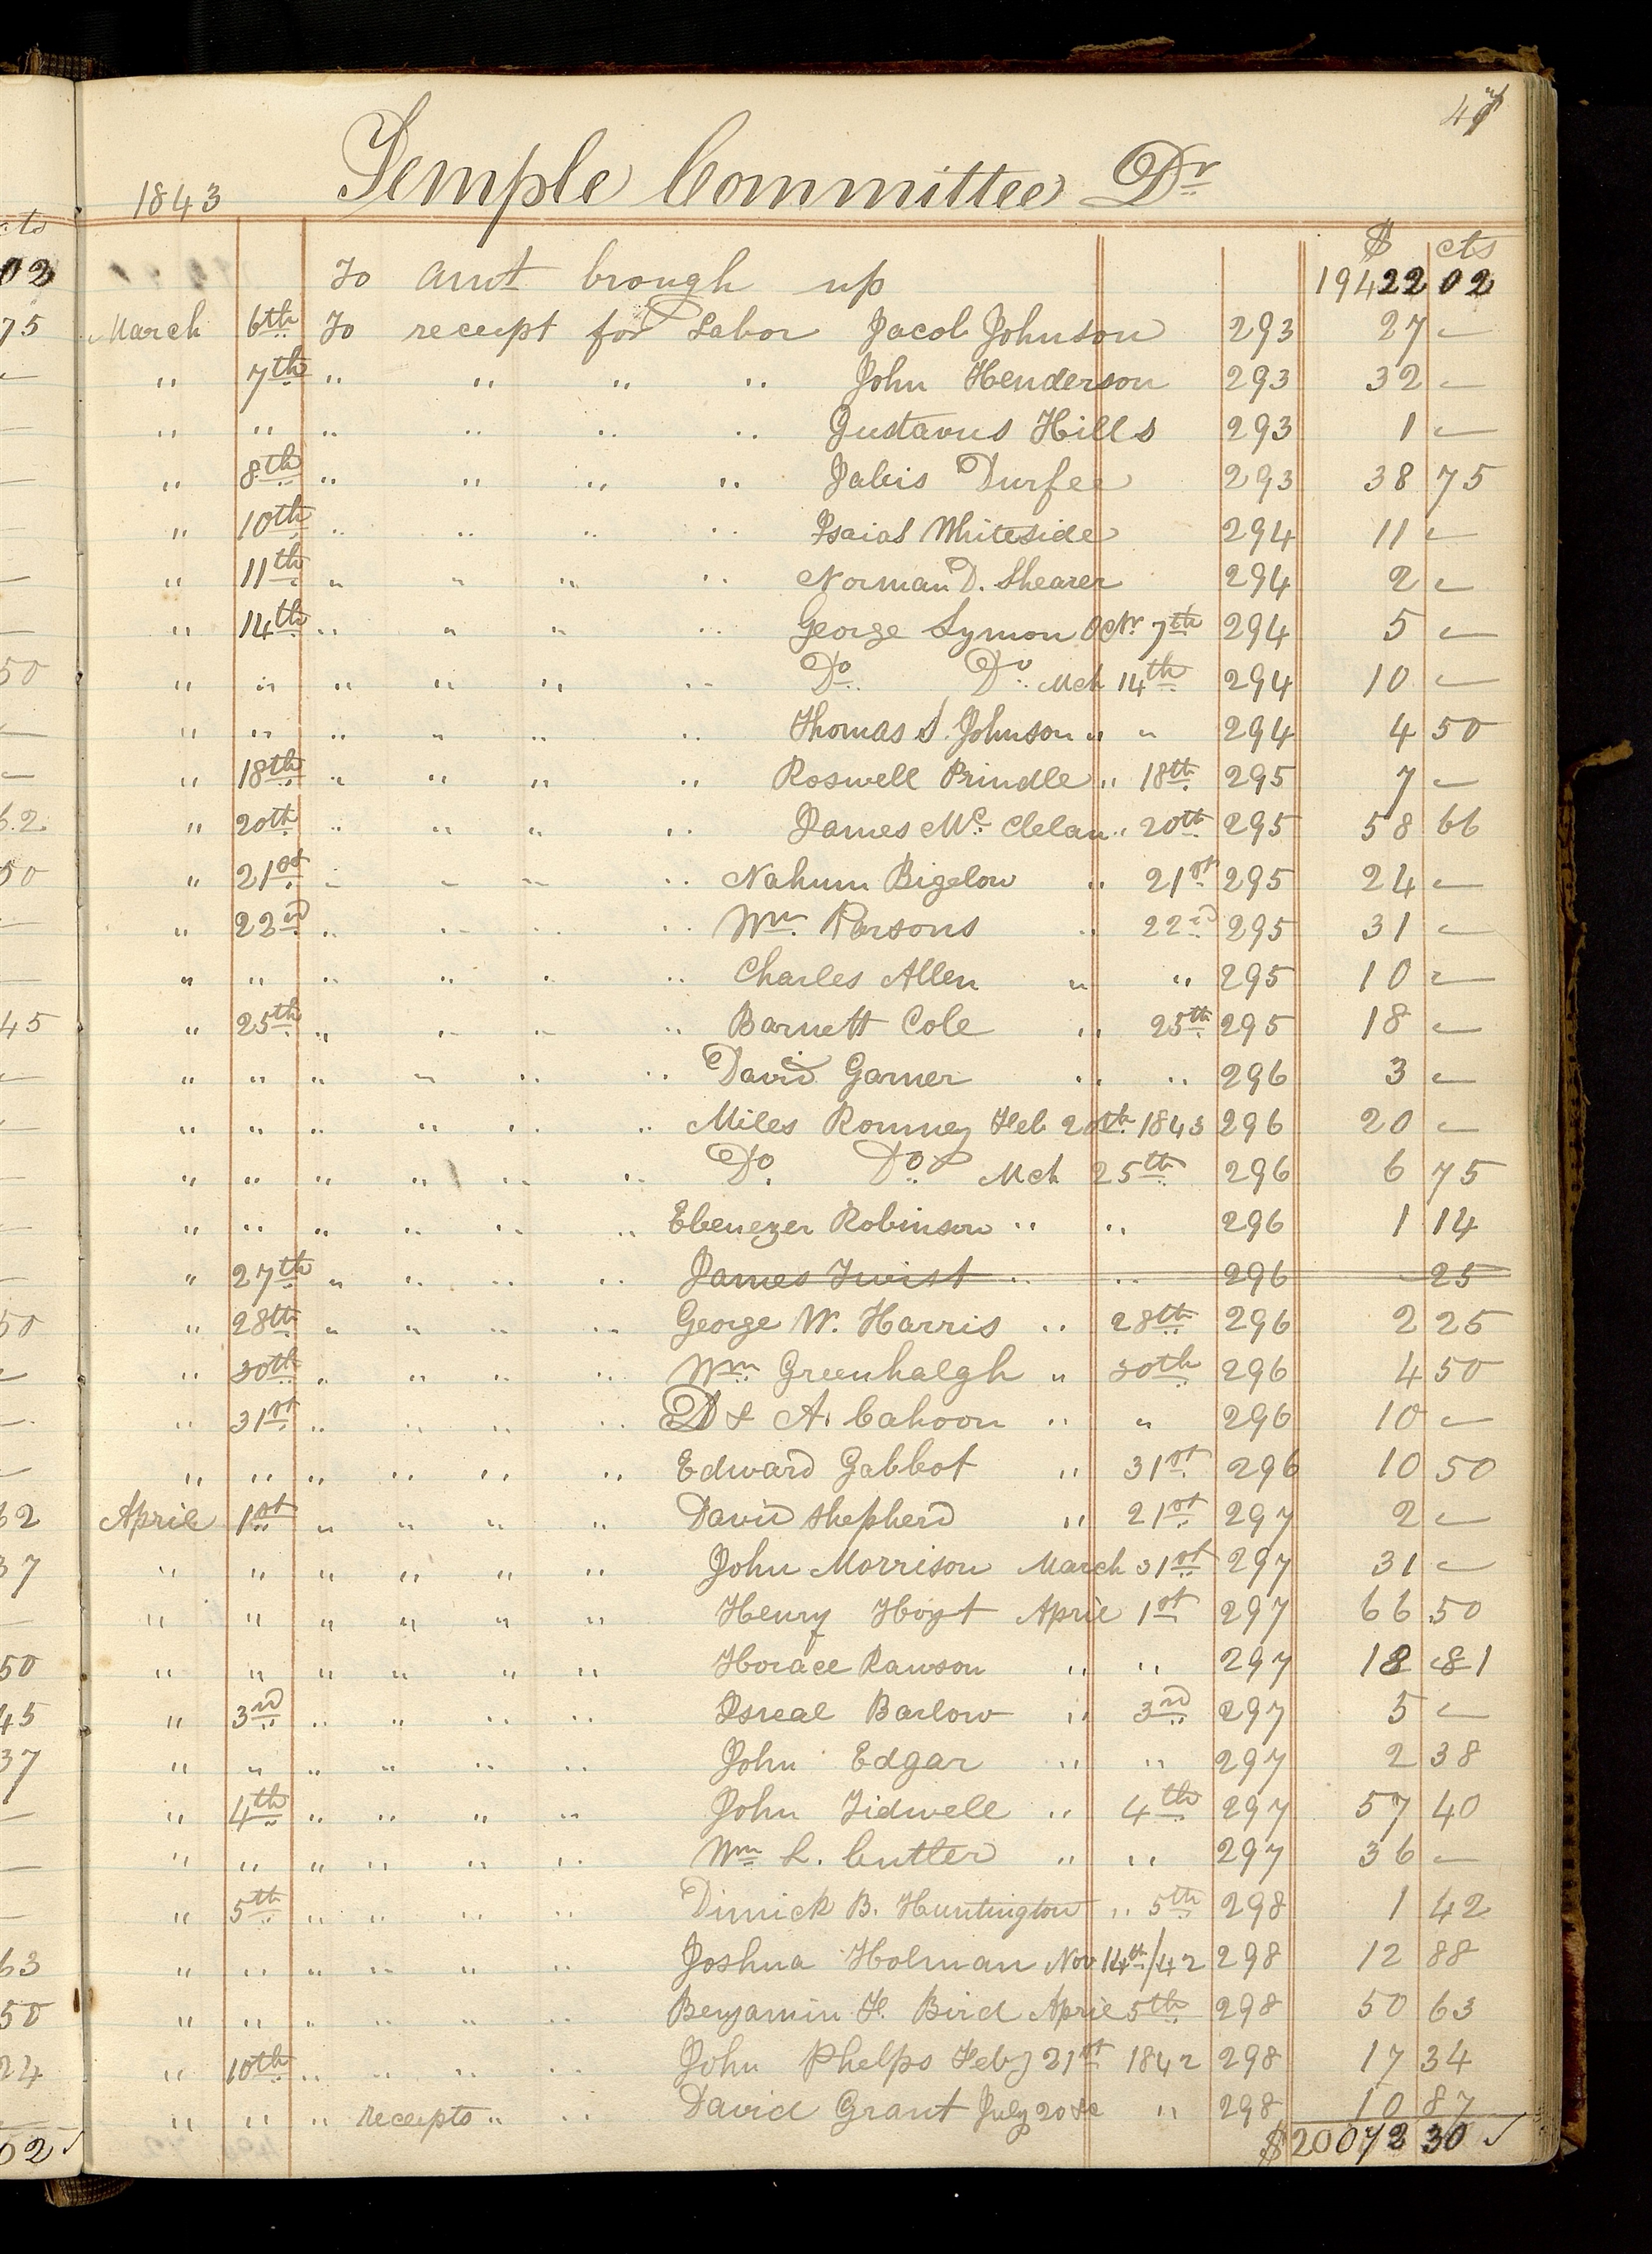 1843 Temple Committee Dr
$ cts
To amt brough up 19422 02
March 6th To receipt for Labor Jacob Johnson 293 27 —
" 7th " " " " John Henderson 293 32 —
" " " " " " Gustavus Hills 293 1 —
" 8th " " " " Jabis Durfee 293 38 75
" 10th " " " " Isaiah Whiteside 294 11 —
" 11th " " " " Norman D. Shearer 294 2 —
" 14th " " " " George Symon Octr 7th 294 5 —
" " " " " " Do Do Mch 14th 294 10 —
" " " " " " Thomas S. Johnson " " 294 4 50
" 18th " " " " Roswell Prindle " 18th 295 7 —
" 20th " " " " James Mc Clelan " 20th 295 58 66
" 21st " " " " Nahum Bigelow " 21st 295 24 —
" 22nd " " " " Wm Parsons " 22nd 295 31 —
" " " " " " Charles Allen " " 295 10 —
" 25th " " " " Barnett Cole " 25th 295 18 —
" " " " " " David Garner " " 296 3 —
" " " " " " Miles Romney Feb 20th 1843 296 20 —
" " " " " " Do Do Mch 25th 296 6 75
" " " " " " Ebenezer Robinson " " 296 1 14
" 27th " " " " James Twist " " 296 — 25
" 28th " " " " George W. Harris " 28th 296 2 25
" 30th " " " " Wm Greenhalgh " 30th 296 4 50
" 31st " " " " D & A. Cahoon " " 296 10 —
" " " " " " Edward Gabbot " 31st 296 10 50
April 1st " " " " David Shepherd " 21st 297 2 —
" " " " " " John Morrison March 31st 297 31 —
" " " " " " Henry Hoyt April 1st 297 66 50
" " " " " " Horace Rawson " " 297 18 81
" 3rd " " " " Isreal Barlow " 3rd 297 5 —
" " " " " " John Edgar " " 297 2 38
" 4th " " " " John Tidwell " 4th 297 57 40
" " " " " " Wm L. Cutler " " 297 36 —
" 5th " " " " Dimick B. Huntington " 5th 298 1 42
" " " " " " Joshua Holman Nov 14th/42 298 12 88
" " " " " " Benjamin F. Bird April 5th 298 50 63
" 10th " " " " John Phelps Feby 21st 1842 298 17 34
" " " receipts " " David Grant July 20 &c " 298 10 87
$20072 30 ✓